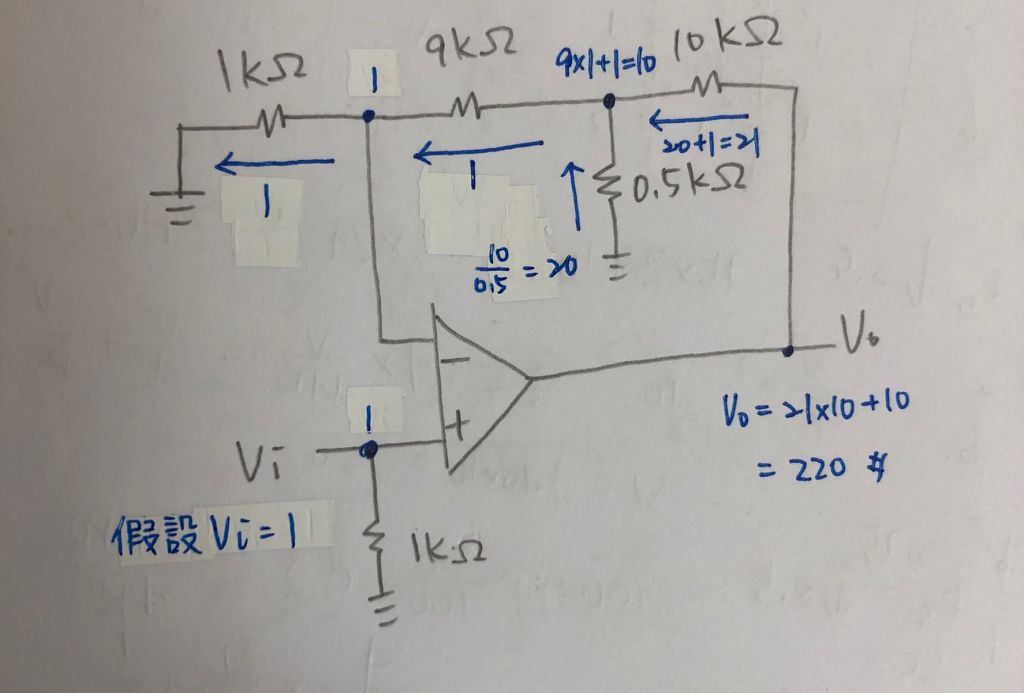 1kΩ
9kΩ
10kΩ
1
9x1+1=10
20+1=21
1
1
0.5kΩ
10/0.5 = 20
−
+
Vo
1
Vi
Vo = 21x10+10
= 220 #
假設 Vi = 1
1kΩ